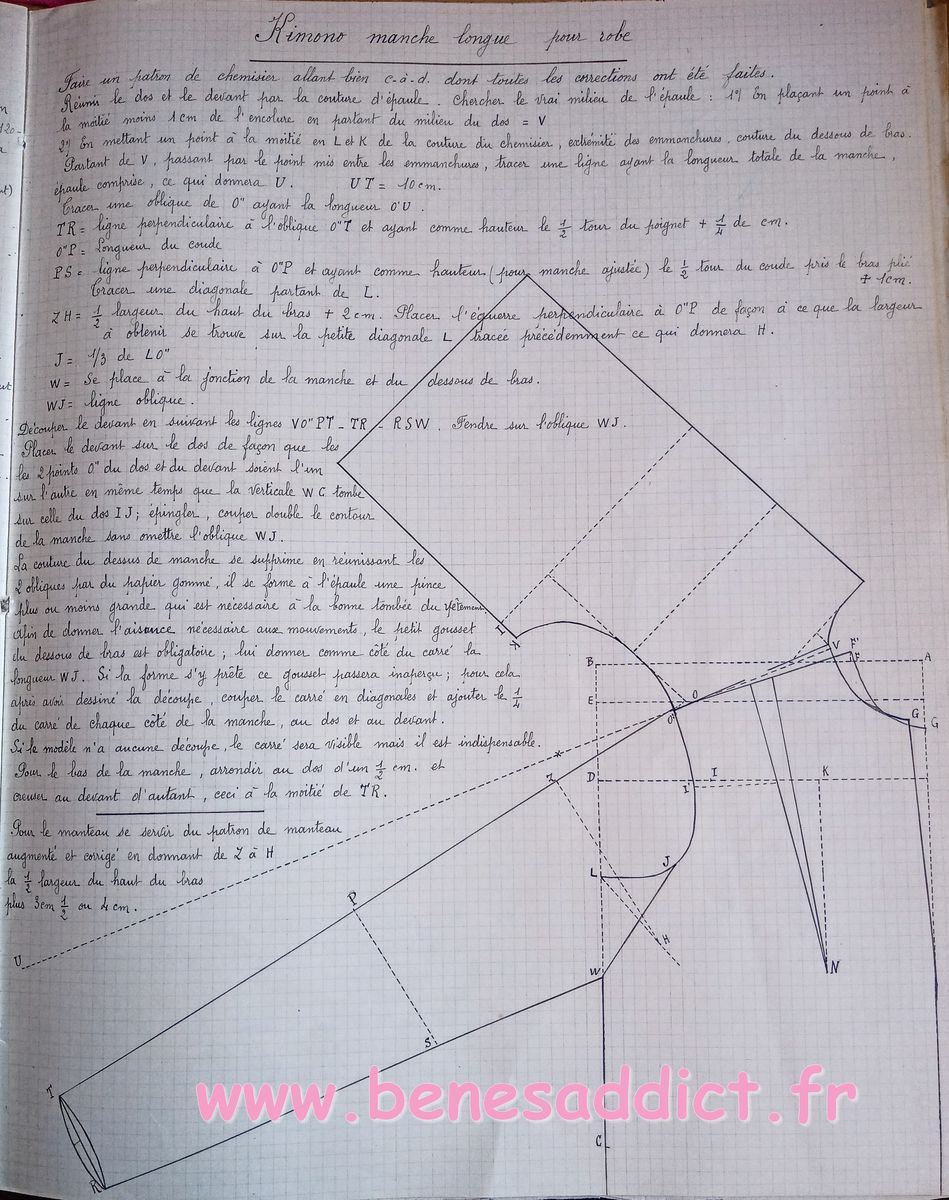 Kimono manche longue pour robe
Faire un patron de chemisier allant bien c-à-d. dont toutes les corrections ont été faites.
Réunir le dos et le devant par la couture d'épaule. Chercher le vrai milieu de l'épaule : 1°/ En plaçant un point à
la moitié moins 1 cm de l'encolure en partant du milieu du dos = V
2°/ En mettant un point à la moitié en L et K de la couture du chemisier, extrémité des emmanchures, couture du dessous de bras.
Partant de V, passant par le point mis entre les emmanchures, tracer une ligne ayant la longueur totale de la manche,
épaule comprise, ce qui donnera U. UT = 10 cm.
Tracer une oblique de O" ayant la longueur O'U.
TR = ligne perpendiculaire à l'oblique O"T et ayant comme hauteur le 1/2 tour du poignet + 1/4 de cm.
O"P = Longueur du coude
PS = ligne perpendiculaire à O"P et ayant comme hauteur (pour manche ajustée) le 1/2 tour du coude pris le bras plié
+ 1cm.
Tracer une diagonale partant de L.
ZH = 1/2 largeur du haut du bras + 2 cm. Placer l'équerre perpendiculaire à O"P de façon à ce que la largeur
à obtenir se trouve sur la petite diagonale L tracée précédemment ce qui donnera H.
J = 1/3 de LO"
W = Se place à la jonction de la manche et du dessous de bras.
WJ = ligne oblique.
Découper le devant en suivant les lignes VO"PT - TR - RSW. Fendre sur l'oblique WJ.
Placer le devant sur le dos de façon que les
les 2 points O" du dos et du devant soient l'un
sur l'autre en même temps que la verticale WC tombe
sur celle du dos IJ; épingler, couper double le contour
de la manche sans omettre l'oblique WJ.
La couture du dessus de manche se supprime en réunissant les
2 obliques par du papier gommé, il se forme à l'épaule une pince
plus ou moins grande qui est nécessaire à la bonne tombée du vêtement
Afin de donner l'aisance nécessaire aux mouvements, le petit gousset
du dessous de bras est obligatoire ; lui donner comme côté du carré la
longueur WJ. Si la forme s'y prête ce gousset passera inaperçu ; pour cela
après avoir dessiné la découpe, couper le carré en diagonales et ajouter le 1/4
du carré de chaque côté de la manche, au dos et au devant.
Si le modèle n'a aucune découpe, le carré sera visible mais il est indispensable.
Pour le bas de la manche, arrondir au dos d'un 1/2 cm. et
creuser au devant d'autant, ceci à la moitié de TR.
Pour le manteau se servir du patron de manteau
augmenté et corrigé en donnant de Z à H
la 1/2 largeur du haut du bras
plus 3cm 1/2 ou 4 cm.
L
K
V
F'
F
B
A
E
O
O"
G
G
Z
D
I
K
I'
J
L
P
H
U
W
N
S
T
C
R
www.benesaddict.fr